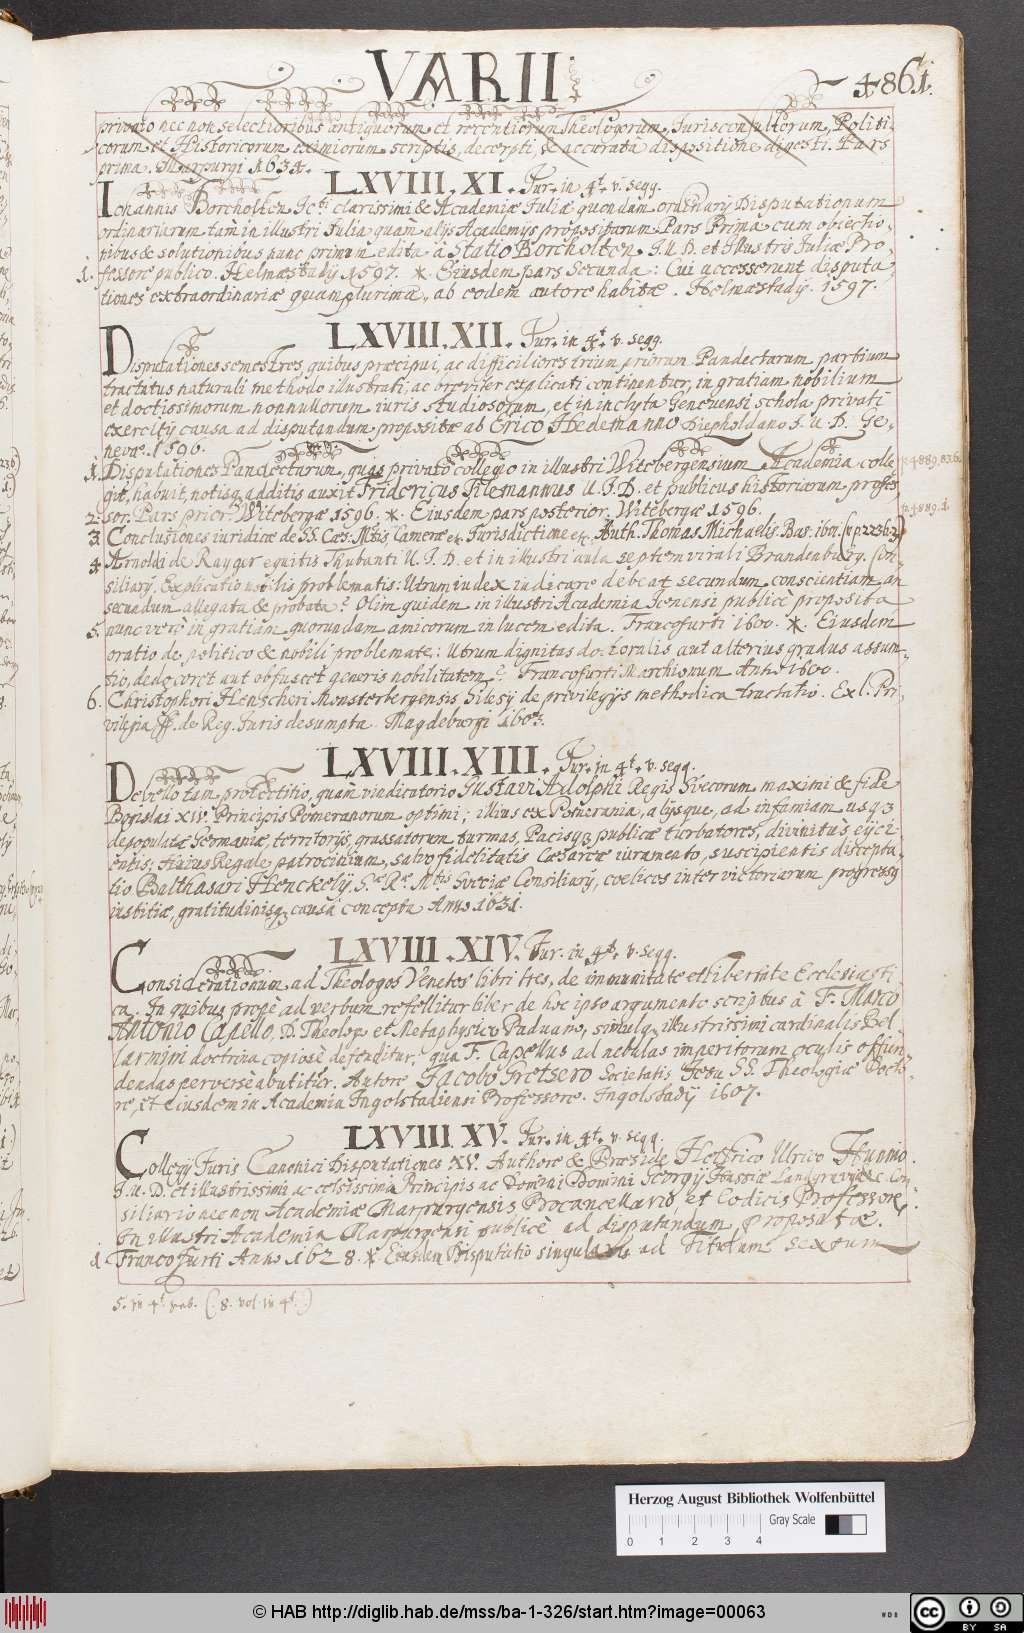 VARII
4861.
privato nec non selectioribus antiquorum et recentiorum Theologorum, Jurisconsultorum, Politi-
corum et Historicorum eximiorum scriptis, decerpti, & accurata dispositione digesti. Pars
prima. Marpurgi 1631.
LXVIII. XI. Jur. in 4t. v. segg.
Iohannis Borcholten Icti clarissimi & Academiæ Juliæ quondam ordinarij Disputationum
ordinariarum tam in illustri Julia quam alijs Academijs propositarum Pars Prima cum obiectio-
nibus & solutionibus nunc primum edita à Statio Borcholten J.U.D. et Illustris Juliæ Pro-
1. fessore publico. Helmæstadij 1597. * Eiusdem pars secunda: Cui accesserunt disputa-
tiones extraordinariæ quamplurimæ, ab eodem autore habitæ. Helmæstadij. 1597.
LXVIII. XII. Jur. in 4t. v. segg.
Disputationes semestres, quibus præcipui, ac difficiliores trium priorum Pandectarum partium
tractatus naturali methodo illustrati, ac breviter explicati continentur, in gratiam nobilium
et doctissimorum nonnullorum iuris studiosorum, et in inclyta Genevensi schola privati
exercitij causa ad disputandum propositæ ab Erico Hedemanno Diepholdano J.U.D. Ge-
nevæ. 1596.
1. Disputationes Pandectarum, quas privato collegio in illustri Witebergensium Academia colle-
p. 4889.836.
git, habuit, notisq. additis auxit Fridericus Tilemannus U.J.D. et publicus historiarum profes-
2. sor. Pars prior. Witebergæ 1596. * Eiusdem pars posterior. Witebergæ 1596.
p. 4889.1.
3. Conclusiones iuridicæ de SS. Cæs. Mtis Cameræ etc. Jurisdictione etc. Auth. Thoma Michaelis. Bas. 1601. (vp 2236.2)
4. Arnoldi de Rayger equitis Thubanti U.J.D. et in illustri aula septemvirali Brandenburg. Con-
siliarij. Explicatio nobilis problematis: Utrum iudex iudicare debeat secundum conscientiam an
secundum allegata & probata? Olim quidem in illustri Academia Jenensi publicè proposita
5. nunc verò in gratiam quorundam amicorum in lucem edita. Francofurti 1600. * Eiusdem
oratio de politico & nobili problemate: Utrum dignitas doctoralis aut alterius gradus assum-
tio, dedecoret aut obfuscet generis nobilitatem? Francofurti Marchionum Anno 1600.
6. Christophori Hentscheri Monsterbergensis Silesij de privilegijs methodica tractatio. Ex l. Pri-
vilegia ff. de Reg. Juris desumpta. Magdeburgi 1603.
LXVIII. XIII. Jur. in 4t. v. segg.
De bello tam protectitio, quam vindicatorio Gustavi Adolphi Regis Svecorum maximi & fide
Bogislai XIV. Principis Pomeranorum optimi; illius ex Pomerania, alijsque, ad infamiam usq3
depopulatæ Germaniæ, territorijs, grassatorum turmas, Pacisq3 publicæ turbatores, divinitùs eijci-
entis; huius Regale patrocinium, salvo fidelitatis Cæsareæ iuramento, suscipientis discepta-
tio Balthasari Henckelij, Sæ. Ræ. Mtis Sveciæ Consiliarij, coelicos inter victoriarum progressus
iustitiæ, gratitudinisq3 causa concepta Anno 1631.
LXVIII. XIV. Jur. in 4t. v. segg.
Considerationum ad Theologos Venetos libri tres, de immunitate et libertate Ecclesiasti-
ca. In quibus propè ad verbum refellitur liber de hoc ipso argumento scriptus à F. Marco
Antonio Capello, D. Theologo et Metaphysico Paduano, simulq. illustrissimi cardinalis Bel-
larmini doctrina copiosè defenditur, qua F. Capellus ad nebulas imperitorum oculis offun-
dendas perversè abutitur. Autore Jacobo Gretsero Societatis Jesu SS. Theologiæ Docto-
re, et eiusdem in Academia Ingolstadiensi Professore. Ingolstadij 1607.
LXVIII. XV. Jur. in 4t. v. segg.
Collegij Juris Canonici Disputationes XV. Authore & Præside Helfrico Ulrico Hunnio.
J.U.D. et illustrissimi ac celsissimi Principis ac Domini Domini Georgij Hassiæ Landgravij etc. Con-
siliario nec non Academiæ Marpurgensis Procancellario, et Codicis Professore,
in illustri Academia Marpurgensi publicè ad disputandum propositæ.
1 Francofurti Anno 1628. * Eiusdem Disputatio singularis ad Titulum sextum
5. in 4t. pab. (.8. vol. in 4t.)
Herzog August Bibliothek Wolfenbüttel
0 1 2 3 4
Gray Scale
© HAB http://diglib.hab.de/mss/ba-1-326/start.htm?image=00063
WDB
CC BY SA